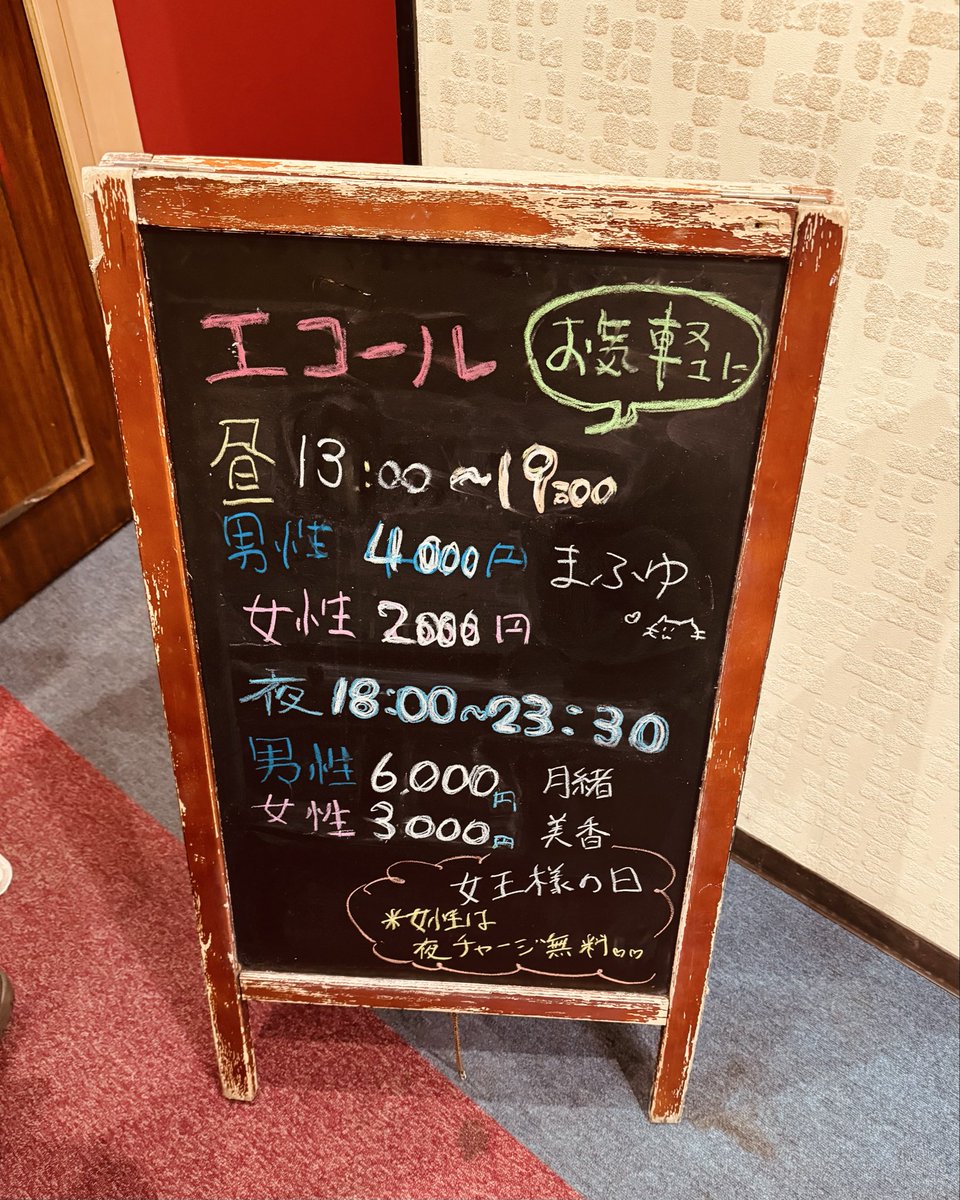 エコール
お気軽に
昼 13:00～19:00
男性 4000円 まふゆ
女性 2000円
夜 18:00～23:30
男性 6,000円 月緒
女性 3000円 美香
女王様の日
*女性は
夜チャージ無料